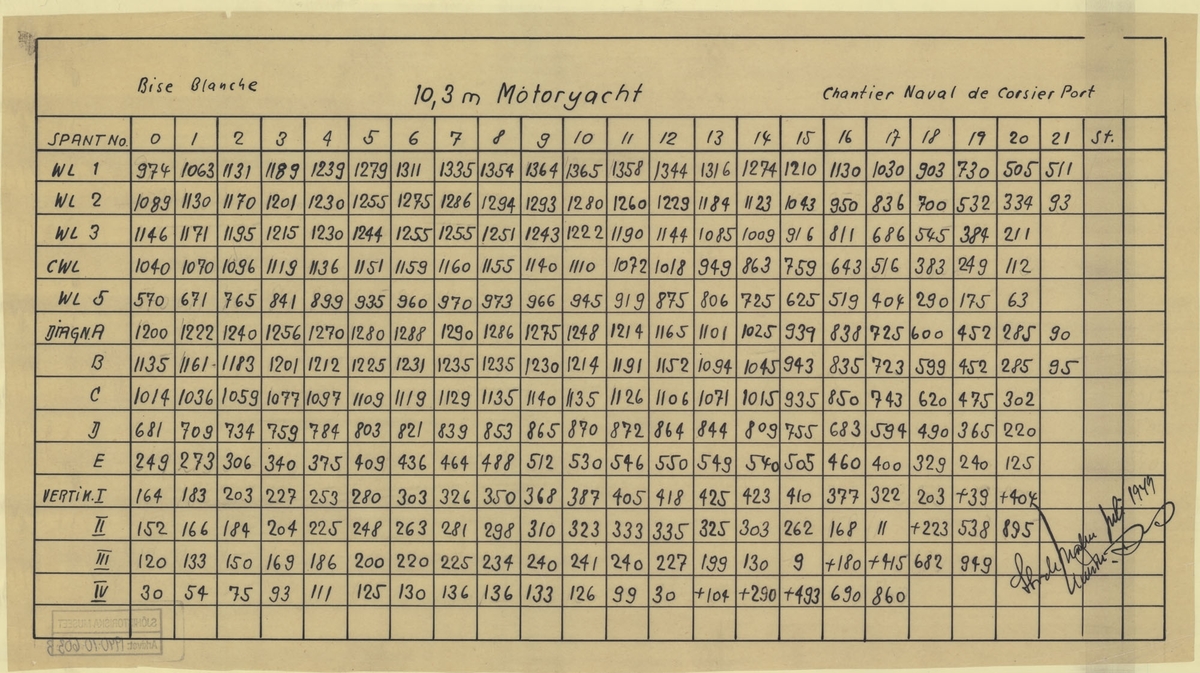 Bise Blanche 10,3 m Motoryacht Chantier Naval de Corsier Port
SPANT No. 0 1 2 3 4 5 6 7 8 9 10 11 12 13 14 15 16 17 18 19 20 21 St.
WL 1 974 1063 1131 1189 1239 1279 1311 1335 1354 1364 1365 1358 1344 1316 1274 1210 1130 1030 903 730 505 511
WL 2 1089 1130 1170 1201 1230 1255 1275 1286 1294 1293 1280 1260 1229 1184 1123 1043 950 836 700 532 334 93
WL 3 1146 1171 1195 1215 1230 1244 1255 1255 1251 1243 1222 1190 1144 1085 1009 916 811 686 545 384 211
CWL 1040 1070 1096 1119 1136 1151 1159 1160 1155 1140 1110 1072 1018 949 863 759 643 516 383 249 112
WL 5 570 671 765 841 899 935 960 970 973 966 945 919 875 806 725 625 519 404 290 175 63
DIAGN.A 1200 1222 1240 1256 1270 1280 1288 1290 1286 1275 1248 1214 1165 1101 1025 939 838 725 600 452 285 90
B 1135 1161 1183 1201 1212 1225 1231 1235 1235 1230 1214 1191 1152 1094 1045 943 835 723 599 452 285 95
C 1014 1036 1059 1077 1097 1109 1119 1129 1135 1140 1135 1126 1106 1071 1015 935 850 743 620 475 302
D 681 709 734 759 784 803 821 839 853 865 870 872 864 844 809 755 683 594 490 365 220
E 249 273 306 340 375 409 436 464 488 512 530 546 550 549 540 505 460 400 329 240 125
VERTIK.I 164 183 203 227 253 280 303 326 350 368 387 405 418 425 423 410 377 322 203 +39 +404
II 152 166 184 204 225 248 263 281 298 310 323 333 335 325 303 262 168 11 +223 538 895
III 120 133 150 169 186 200 220 225 234 240 241 240 227 199 130 9 +180 +415 682 949
IV 30 54 75 93 111 125 130 136 136 133 126 99 30 +104 +290 +493 690 860
Juli 1949
SJÖHISTORISKA MUSEET